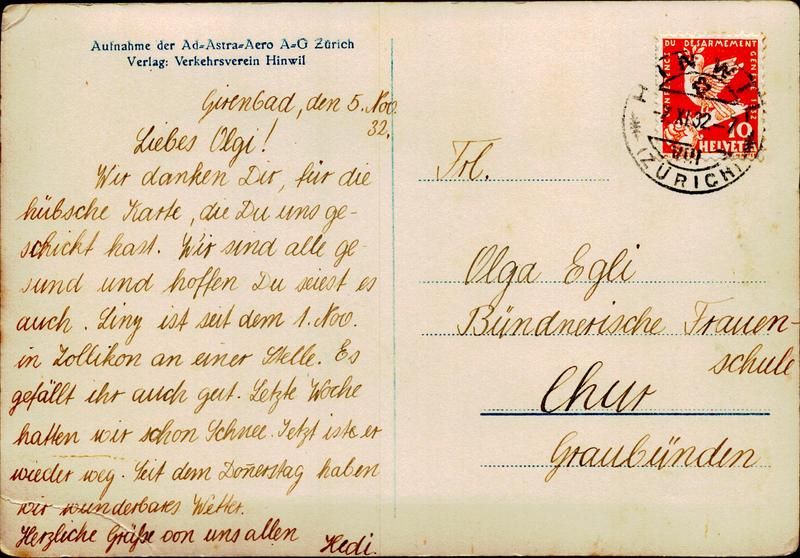 Aufnahme der Ad-Astra-Aero A-G Zürich
Verlag: Verkehrsverein Hinwil
Girenbad, den 5. Nov.
32.
Liebes Olgi!
Wir danken Dir, für die
hübsche Karte, die Du uns ge-
schickt hast. Wir sind alle ge-
sund und hoffen Du seiest es
auch. Liny ist seit dem 1. Nov.
in Zollikon an einer Stelle. Es
gefällt ihr auch gut. Letzte Woche
hatten wir schon Schnee. Jetzt ist er
wieder weg. Seit dem Donerstag haben
wir wunderbares Wetter.
Herzliche Grüße von uns allen
Hedi.
DU DESARMEMENT
10
HELVETIA
HINWIL
XI.32
VIII
(ZÜRICH)
Frl.
Olga Egli
Bündnerische Frauen-
schule
Chur
Graubünden